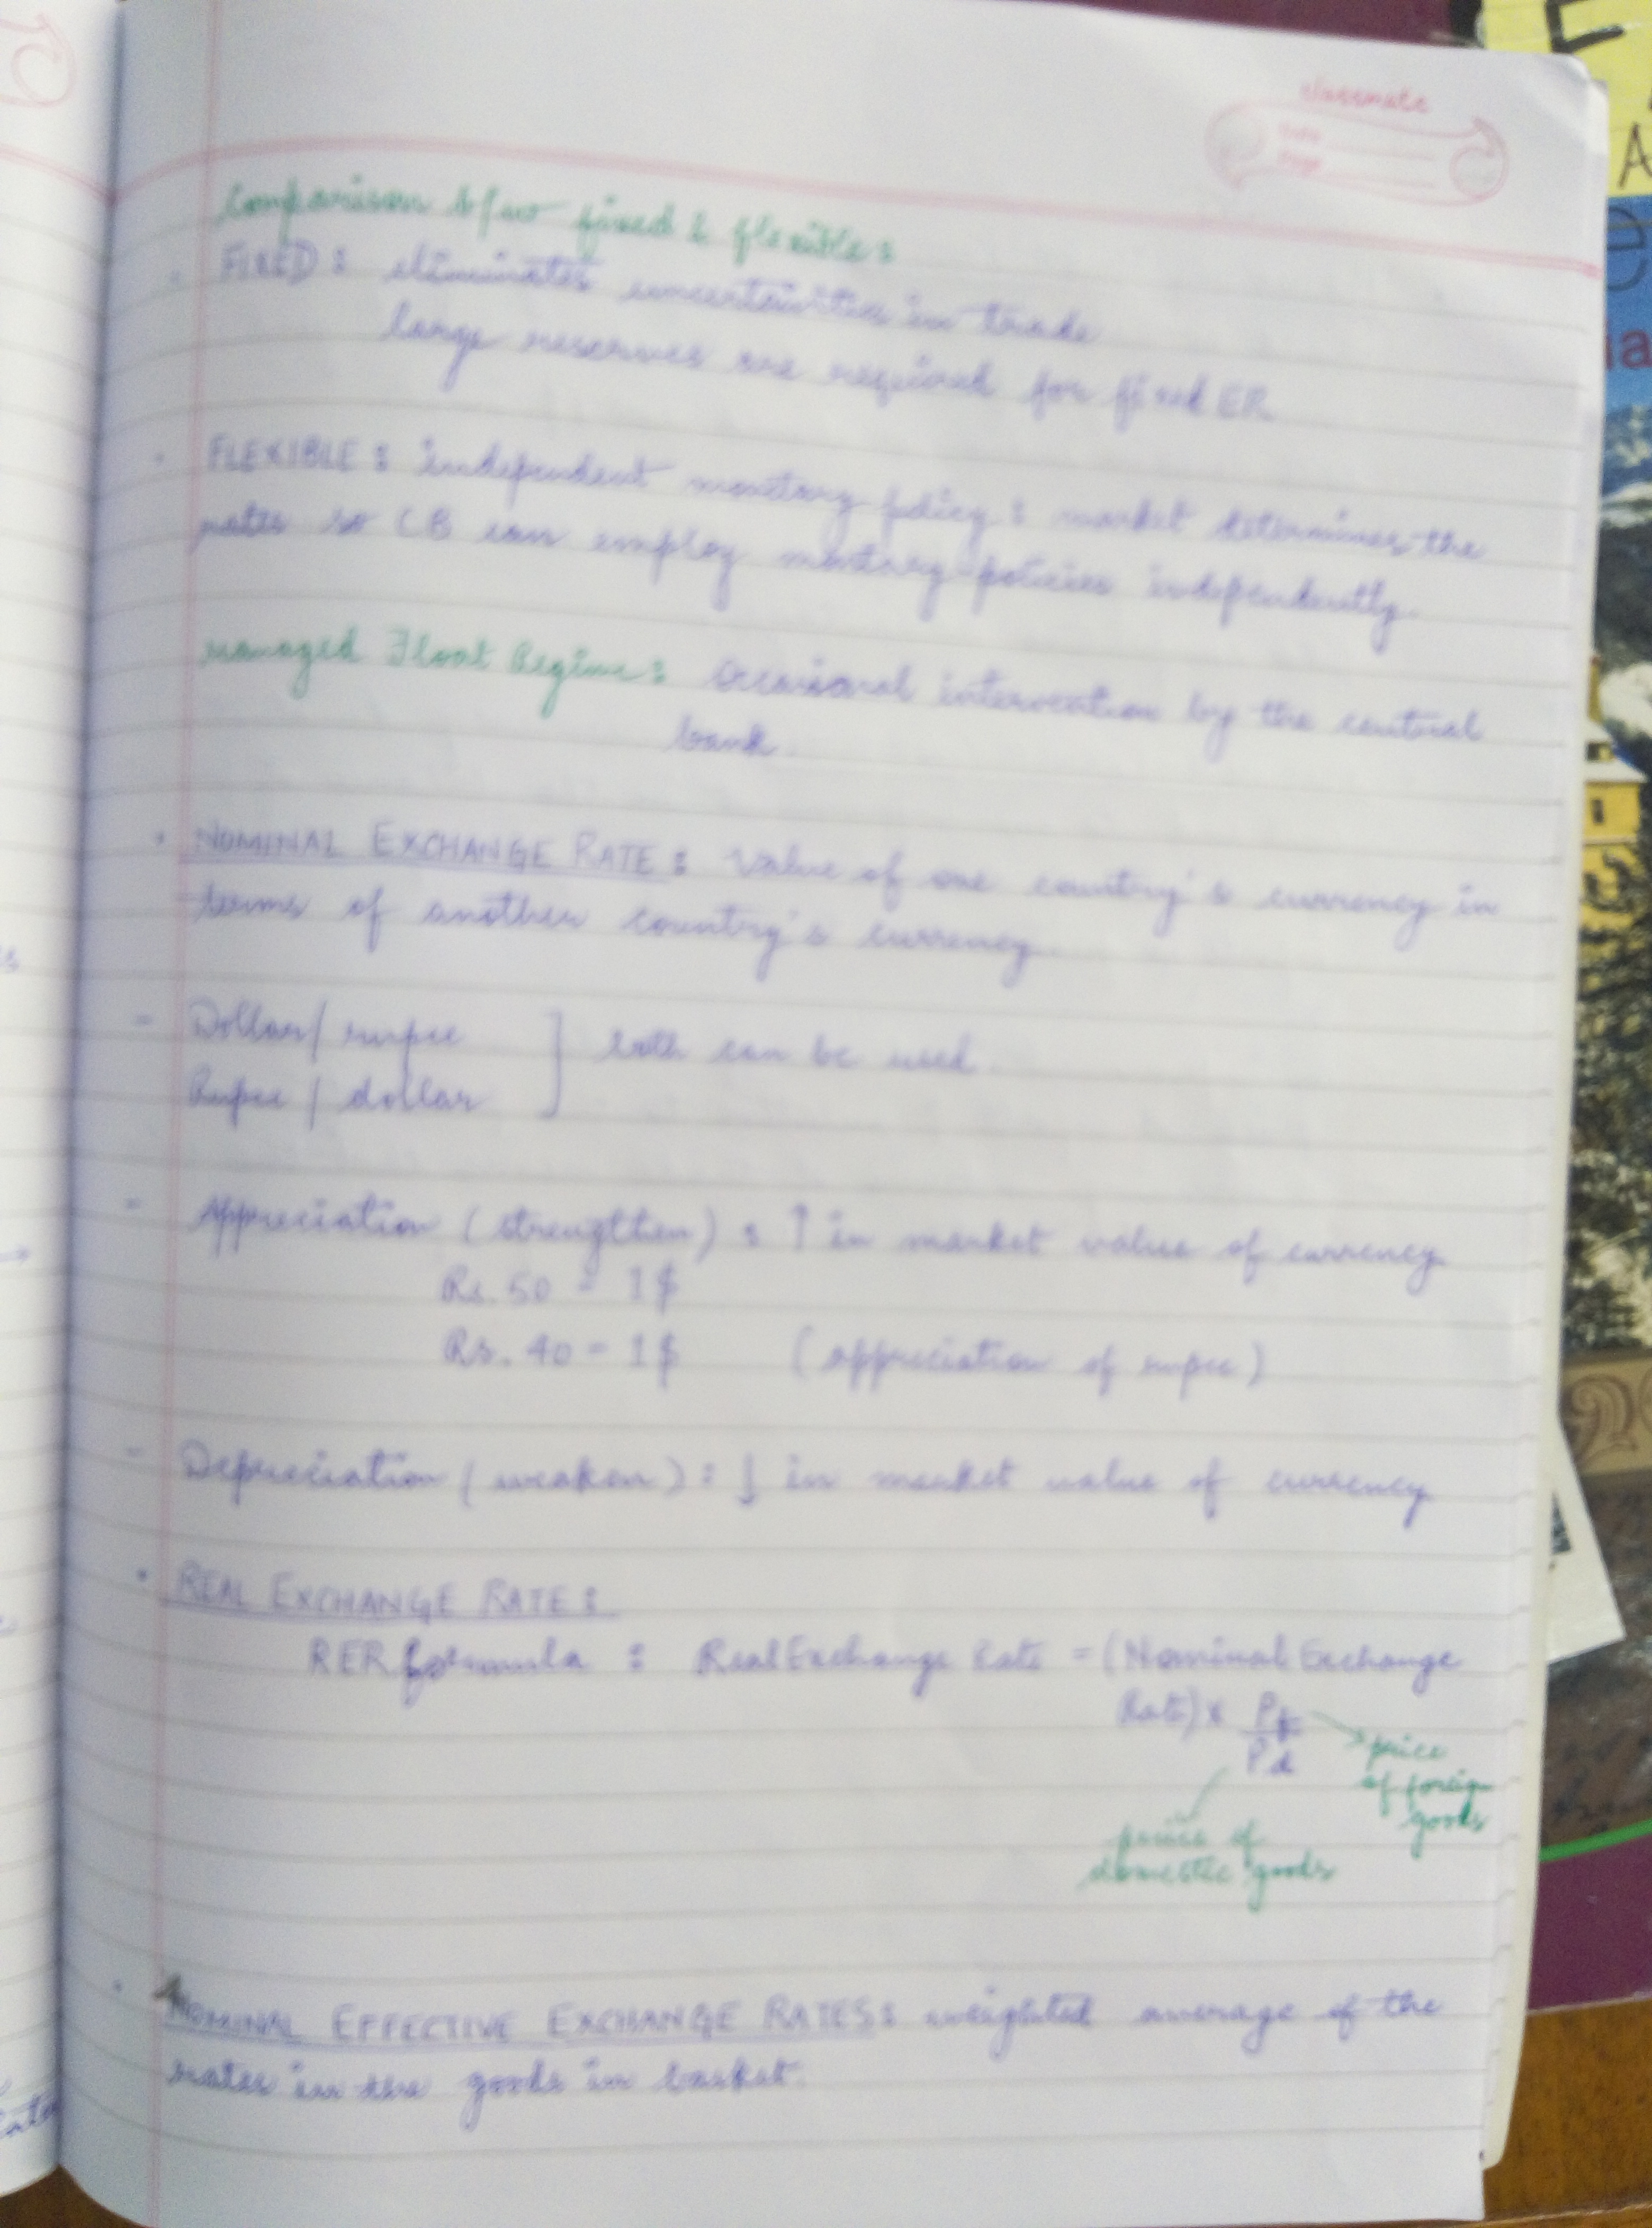 classmate
Date
Page
Comparison b/wo fixed & flexible:
- FIXED: eliminates uncertainities in trade
large reserves are required for fixed ER
· FLEXIBLE: independent monetary policy: market determines the
rates so CB can employ monetary policies independently.
managed Float Regime: Occasional intervention by the central
bank.
· NOMINAL EXCHANGE RATE: Value of one country's currency in
terms of another country's currency.
- Dollar/rupee ] both can be used.
Rupee/dollar
- Appreciation (strengthen): ↑ in market value of currency
Rs. 50 = 1$
Rs. 40 = 1$ (appreciation of rupee)
- Depreciation (weaken): ↓ in market value of currency
· REAL EXCHANGE RATE:
RER formula: Real Exchange Rate = (Nominal Exchange
Rate) x Pf/Pd
price
of foreign
goods
price of
domestic goods
· NOMINAL EFFECTIVE EXCHANGE RATES: weighted average of the
rates in the goods in basket.